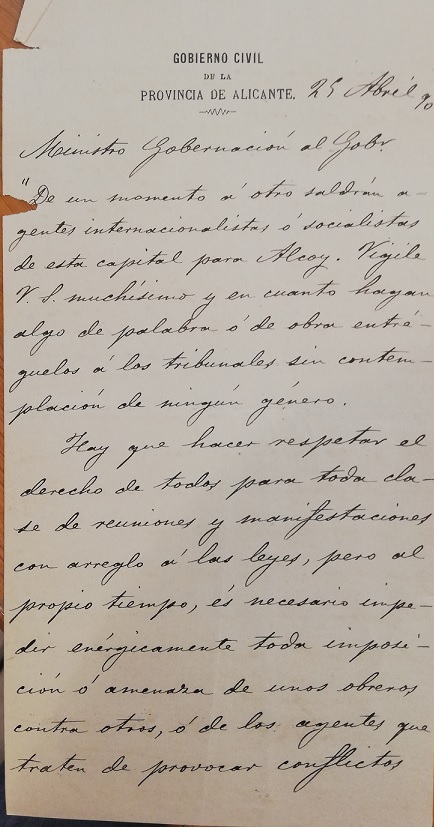 GOBIERNO CIVIL
DE LA
PROVINCIA DE ALICANTE.
25 Abril 90
Ministro Gobernación al Gobr.
"De un momento á otro saldrán a-
gentes internacionalistas ó socialistas
de esta capital para Alcoy. Vigile
V. S. muchísimo y en cuanto hagan
algo de palabra ó de obra entré-
guelos á los tribunales sin contem-
plación de ningún género.
Hay que hacer respetar el
derecho de todos para toda cla-
se de reuniones y manifestaciones
con arreglo á las leyes, pero al
propio tiempo, és necesario impe-
dir enérgicamente toda imposi-
ción ó amenaza de unos obreros
contra otros, ó de los agentes que
traten de provocar conflictos